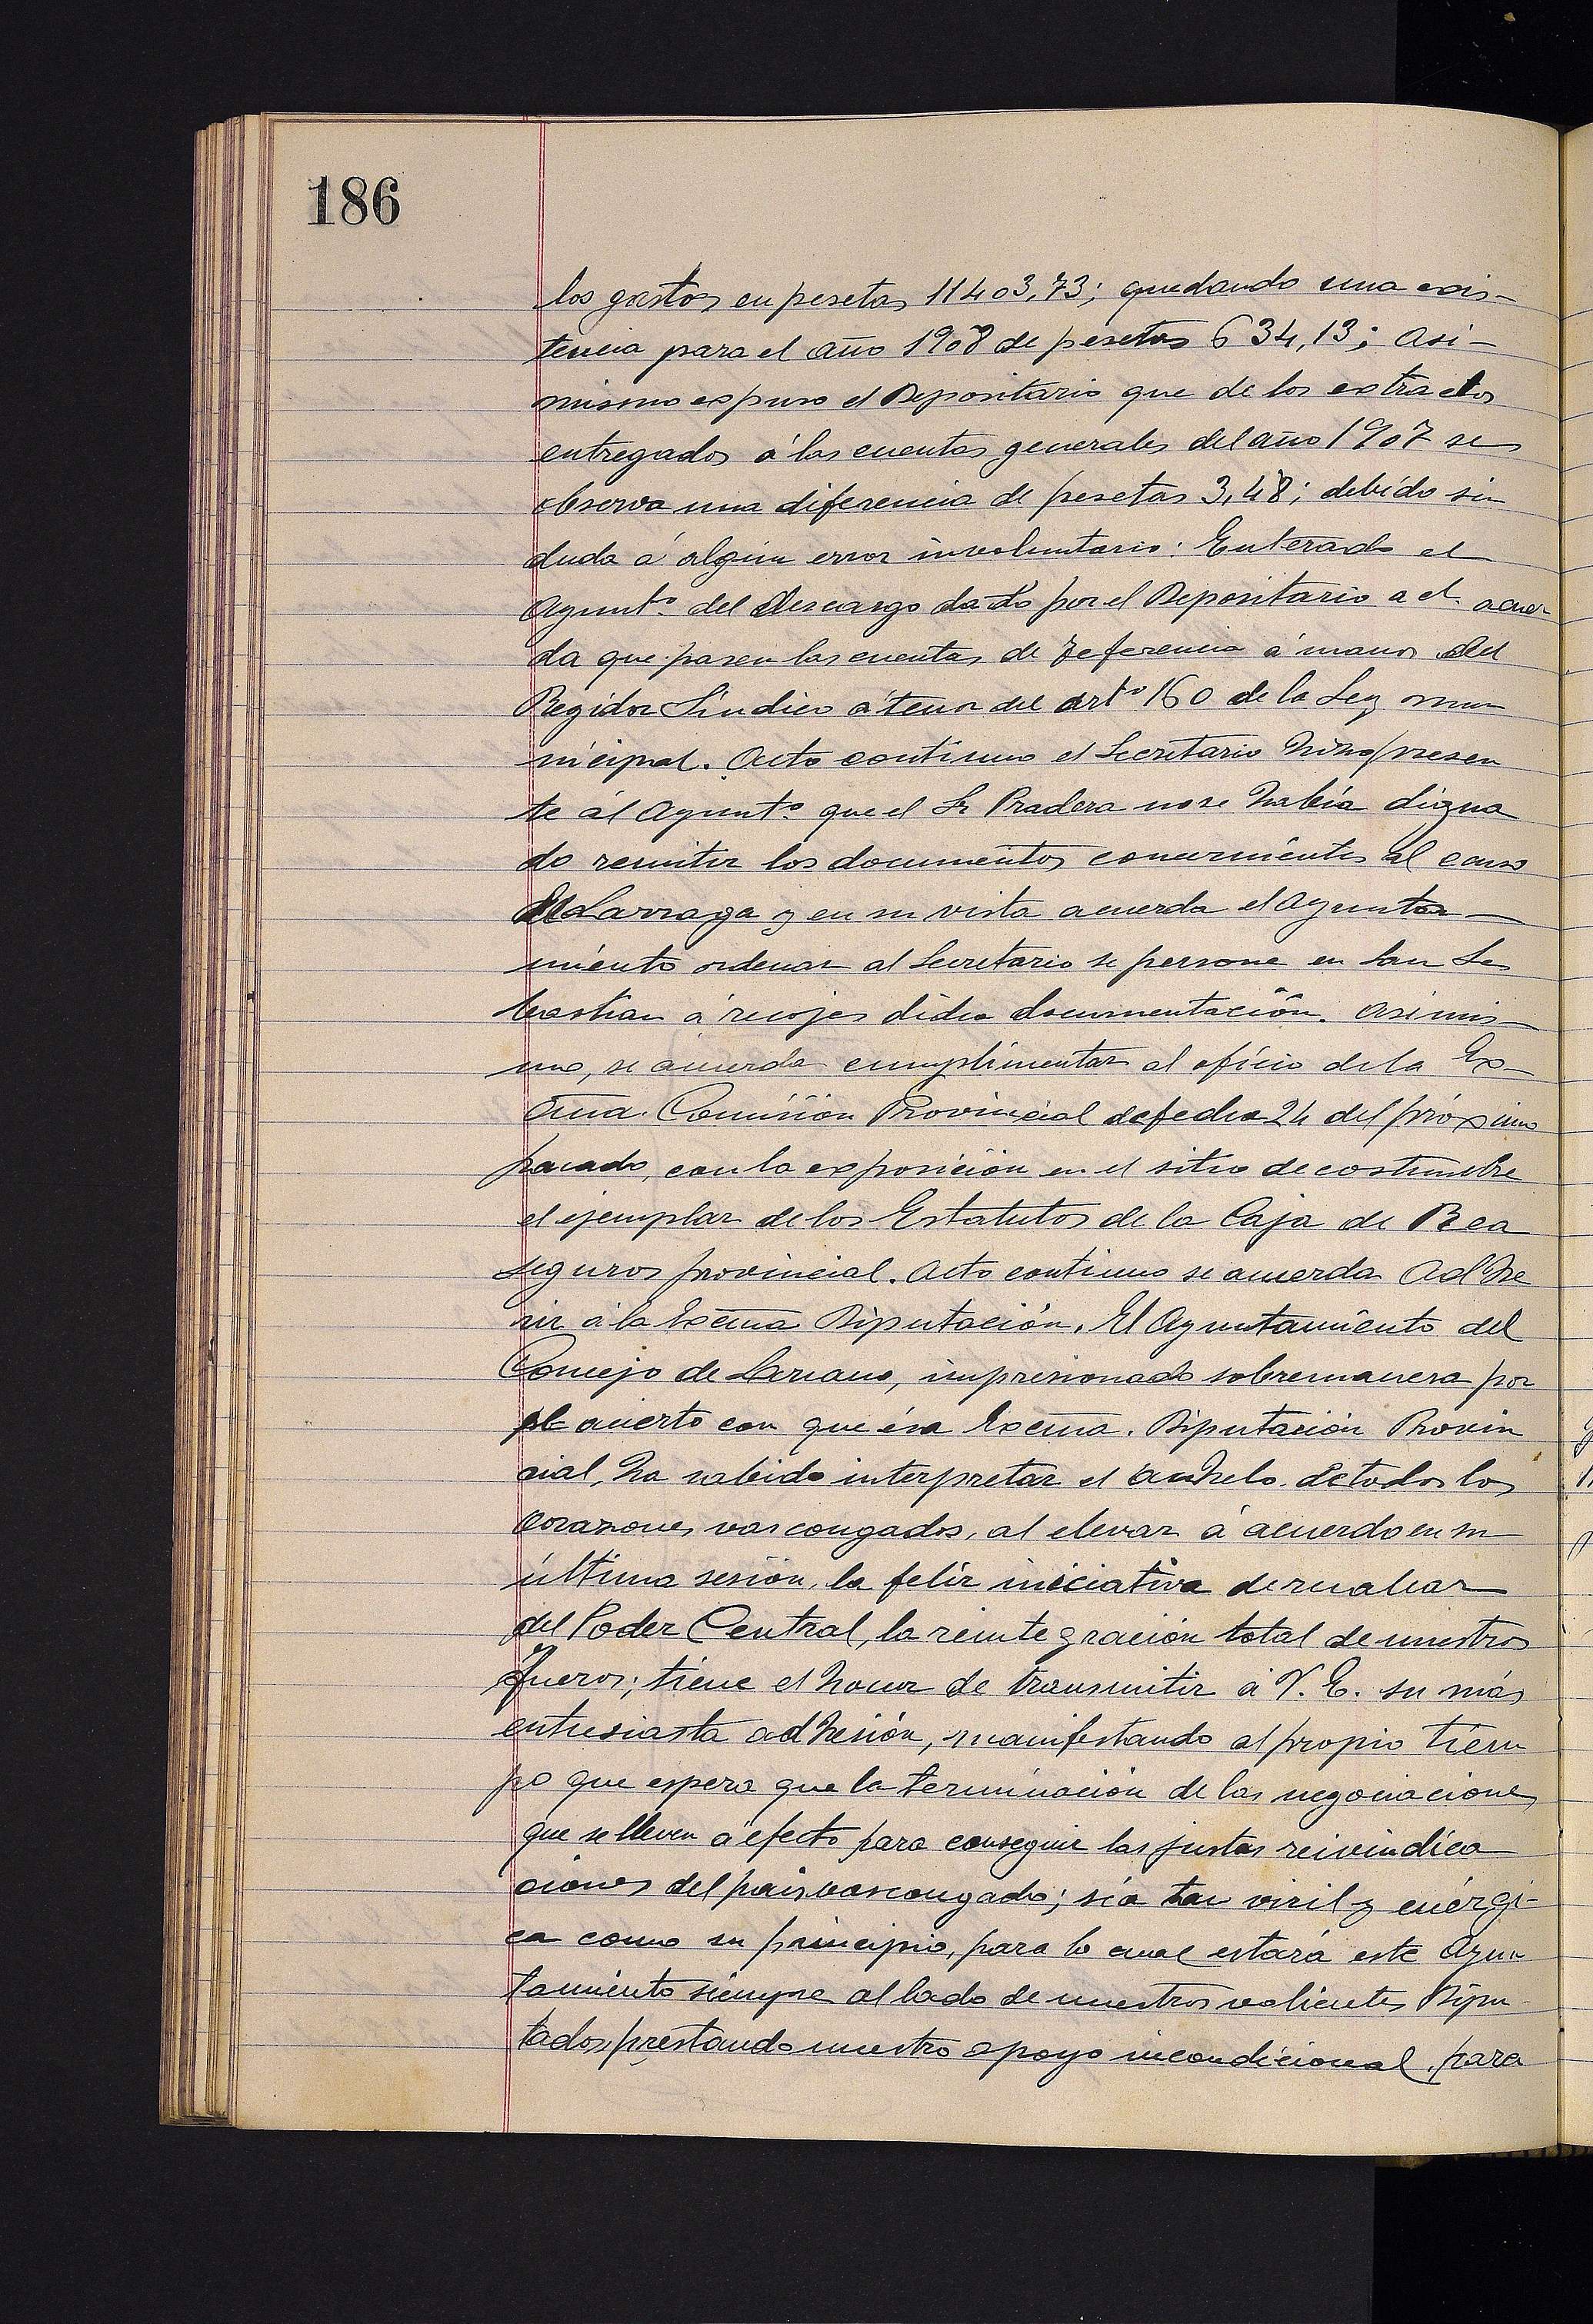 186
los gastos en pesetas 11403,73; quedando una exis-
tencia para el año 1908 de pesetas 634,13; Asi-
mismo expuso el Depositario que de los extractos
entregados á las cuentas generales del año 1907 se
observa una diferencia de pesetas 3,48; debido sin
duda á algun error involuntario: Enterado el
Ayuntº del descargo dado por el Depositario a el acuer
da que pasen las cuentas de referencia á manos del
Regidor Síndico á tenor del artº 160 de la Ley mu
nicipal. Acto continuo el Secretario hizo presen
te al Ayuntº que el Sr Pradera no se había digna
do remitir los documentos concernientes al caso
Larraga y en su vista acuerda el Ayunta-
miento ordenar al Secretario se persone en San Se
bastian á recojer dicha documentación. Asimis-
mo, se acuerda cumplimentar al oficio de la Ex-
cma. Comisión Provincial de fecha 24 del próximo
pasado, con la exposición en el sitio de costumbre
el ejemplar de los Estatutos de la Caja de Rea
seguros provincial. Acto continuo se acuerda Adhe
rir á la Excma Diputación. El Ayuntamiento del
Concejo de Lareano, impresionado sobremanera por
el acierto con que ésa Excma. Diputación Provin
cial, ha sabido interpretar el anhelo de todos los
corazones vascongados, al elevar á acuerdo en su
última sesión, la feliz iniciativa de recabar
del Poder Central, la reintegración total de nuestros
Fueros; tiene el honor de transmitir á V. E. su más
entusiasta adhesión, manifestando al propio tiem
po que espera que la terminación de las negociaciones
que se lleven á efecto para conseguir las justas reivindica
ciones del pais vascongado; séa tan viril y enérgi-
ca como su principio, para lo cual estará este Ayun
tamiento siempre al lado de nuestros valientes Dipu
tados, prestando nuestro apoyo incondicional, para